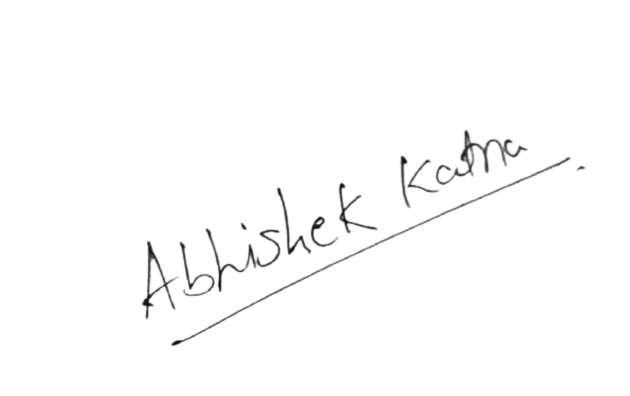 Abhishek Katna